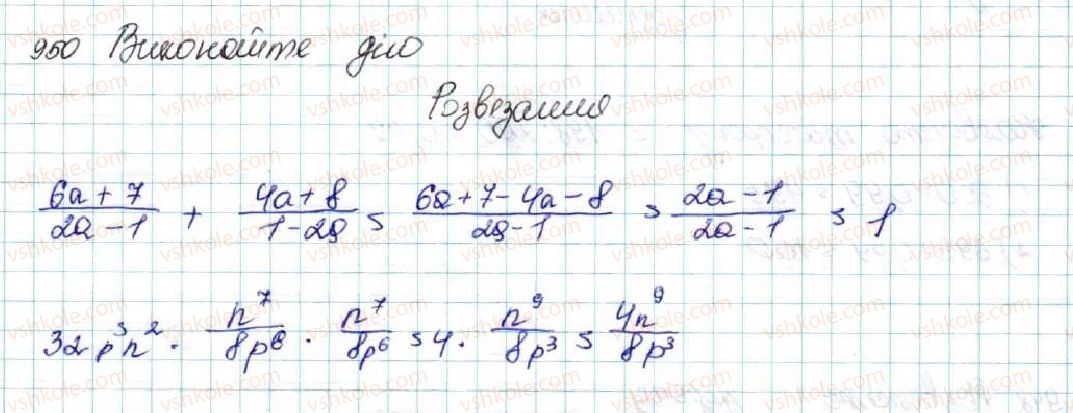 950 Виконайте дію
Розвезання
\frac{6a+7}{2a-1} + \frac{4a+8}{1-2a} = \frac{6a+7-4a-8}{2a-1} = \frac{2a-1}{2a-1} = 1
32p^3n^2 \cdot \frac{n^7}{8p^6} \cdot \frac{n^7}{8p^6} = 4 \cdot \frac{n^9}{8p^3} = \frac{4n^9}{8p^3}